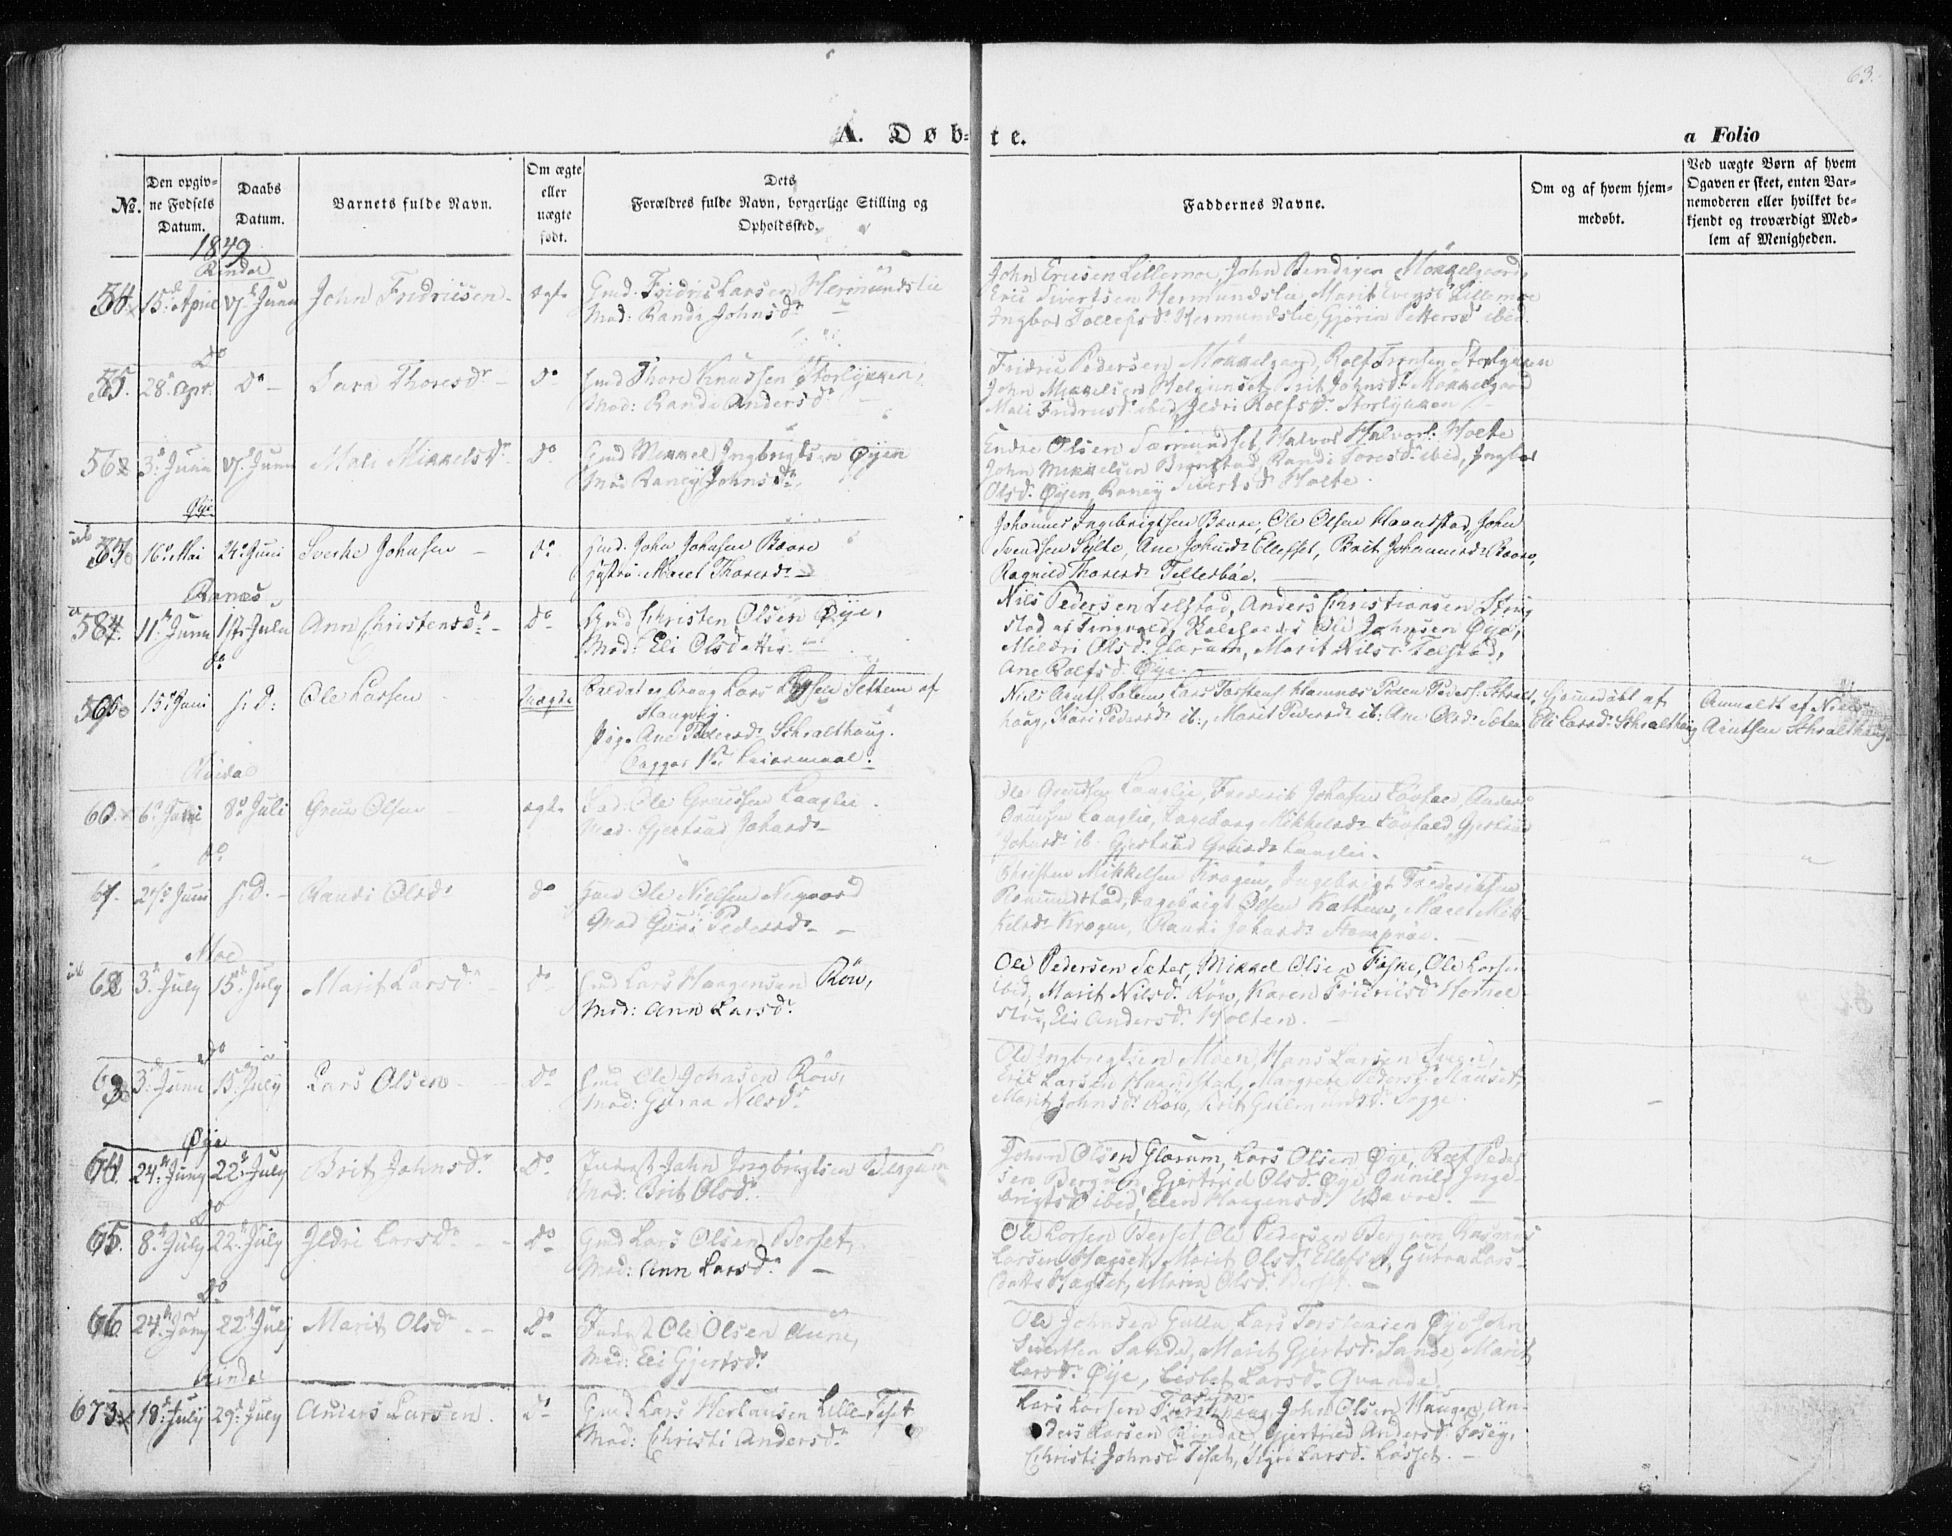 63.
A. Døb-te.
a Folio
No.
Den opgiv-
ne Fødsels
Datum.
Daabs
Datum.
Barnets fulde Navn.
Om ægte
eller
uægte
født.
Dets
Forældres fulde Navn, borgerlige Stilling og
Opholdssted.
Faddernes Navne.
Om og af hvem hjem-
medøbt.
Ved uægte Børn af hvem
Opgaven er skeet, enten Bar-
nemoderen eller hvilket be-
kjendt og troværdigt Med-
lem af Menigheden.
1849
Rindal
54. 15de April 17de Juni John Fridrichsen ægte Gmd. Fridric Larsen Hermundslie
Mod: Randi Johnsdr
John Ericsen Lillemoe, John Bendigen Mokkelgaard,
Eric Sivertsen Hermundslie, Marit Lillemoe
Ingbor Tollefsdr Hermundslie, Gjørin Pettersdr ibid.
Do
55. 28de Apr. Do Sara Thoresdr Do Gmd Thore Knudsen Storlykken,
Mod: Randi Andersdr
Fridric Pedersen Mokkelgaard, Rolf Storlykken
John Mikkelsen Helgunset, Brit Johnsdr Mokkelgaard
Mali Fridricsdr ibid, Jldri Rolfsdr Storlykken
56 3de Juni 17de Juni Mali Mikkelsdr Do Gmd Mikkel Ingbrigtsen Øyen
Mod Raney Johnsdr,
Endre Olsen Sæmundset, Halvor Halvors. Holte
John Mikkelsen Brønstad, Randi Toresdr ibid, Ingbor
Olsdr Øyen, Raney Sivertsdr Holte.
Øye
57 16de Mai 24de Juni Sverke Johnsen Do Gmd. John Johnsen Bævre
Hustru Maret Thoresdr
Johannes Ingebrigtsen Bævre, Ole Olsen Haandstad, John
Svendsen Sylte, Ane Johnsdr Ellefset, Brit Johannesdr Bævre,
Ragnild Thoresdr Telterbøe.
Ranes
58 11te Juni 1ste Juli Ann Christensdr Do Gmd Christen Olsen Øye,
Mod: Eli Olsdatter
Nils Pedersen Telstad, Anders Christiansen
stad af Tingvold, Ole Johnsen Øye,
Mildri Olsdr Glærum, Marit Nilsdr Telstad,
Ane Rolfsdr Øye.
do
59 15de Juni s: D: Ole Larsen Uægte Soldat og Ung Lars Settem af
Stangvig.
Pige Ane Pedersdr Schralthaug.
Begges 1ste Leiermaal.
Nils Arntsen Lars Torstens. Hamnes Peder Peders. Schralt-
haug, Kari Pedersdr ib:, Marit Pedersdr ib: Ane Olsdr Sæter
Hjemmedøbt af
Eli Larsdr Schralthaug
Anmeldt af Niels
Arntsen Schralthaug
Rindal
60. 6te Juni 8de Juli Greis Olsen ægte Gmd. Ole Gruesen Langlie
Mod. Gjertrud Johnsdr
Ole Langlie, Frederik Johnsen Løvfald, Anders
Langlie, Ingeborg Mikkelsdr Løvfald, Gjertrud
Johnsdr ib. Gjertrud Langlie.
do
61. 27de Juni s. D. Randi Olsdr do Gmd Ole Nielsen Nergaard
Mod Guri Pedersdr
Christen Mikkelsen Krogen, Ingebrigt Frederiksen
Romundstad, Ingebrigt Olsen Kattem, Maret Mik-
kelsdr Krogen, Randi Johnsdr
Moe
62 3de July 15de July Marit Larsdr Do Gmd Lars Haagensen Røw,
Mod: Ann Larsdr
Ole Pedersen Sæter, Mikkel Olsen Fiske, Ole Larsen
ibid, Marit Nilsdr Røw, Karen Fridricsdr Homel-
stue, Eli Andersdr Holten.
Do
63 3de Juni 15de July Lars Olsen Do Gmd Ole Johnsen Røw,
Mod: Gurna Nilsdr
Ole Ingbrigtsen Moen, Hans Larsen
Eric Larsen Haandstad, Margrete Pedersdr Mauset,
Marit Johnsdr Røw, Brit Gulmundsdr Sogge.
Øye
64. 24de Juny 22de July Brit Johnsdr Do Inderst John Ingbrigtsen Bergum
Mod: Brit Olsdr
Johan Olsen Glærum, Lars Olsen Øye, Rolf Peder-
sen Bergum, Gjertrud Olsdr Øye, Gunild Inge-
brigtsdr ibid, Elen Haagensdr Bævre.
Do
65. 8de July 22de July Jldri Larsdr Do Gmd Lars Olsen Berset,
Mod: Ann Larsdr
Ole Larsen Berset, Ole Pedersen Bergum, Rasmus
Larsen Hagset, Marit Olsdr Ellefset, Gurna Lars-
datter Hagset, Maren Olsdr Berset.
Do
66. 24de Juny 22de July Marit Olsdr Do Inderst Ole Olsen Aune,
Mod: Eli Gjertsdr
Ole Johnsen Gulla, Lars Torstensen Øye, John
Sivertsen Sande, Marit Gjertsdr Sande, Marit
Larsdr Øye, Lisbet Larsdr Qvande.
Rindal
67 18de July 29de July Anders Larsen Do Gmd Lars Herlausen Lille-Tiset
Mod: Christi Andersdr
Lars Larsen John Olsen Haugen, An-
ders Larsen Rindal, Gjertrud Andersdr
Christi Johnsdr Tiset, Sigri Larsdr Løsset.